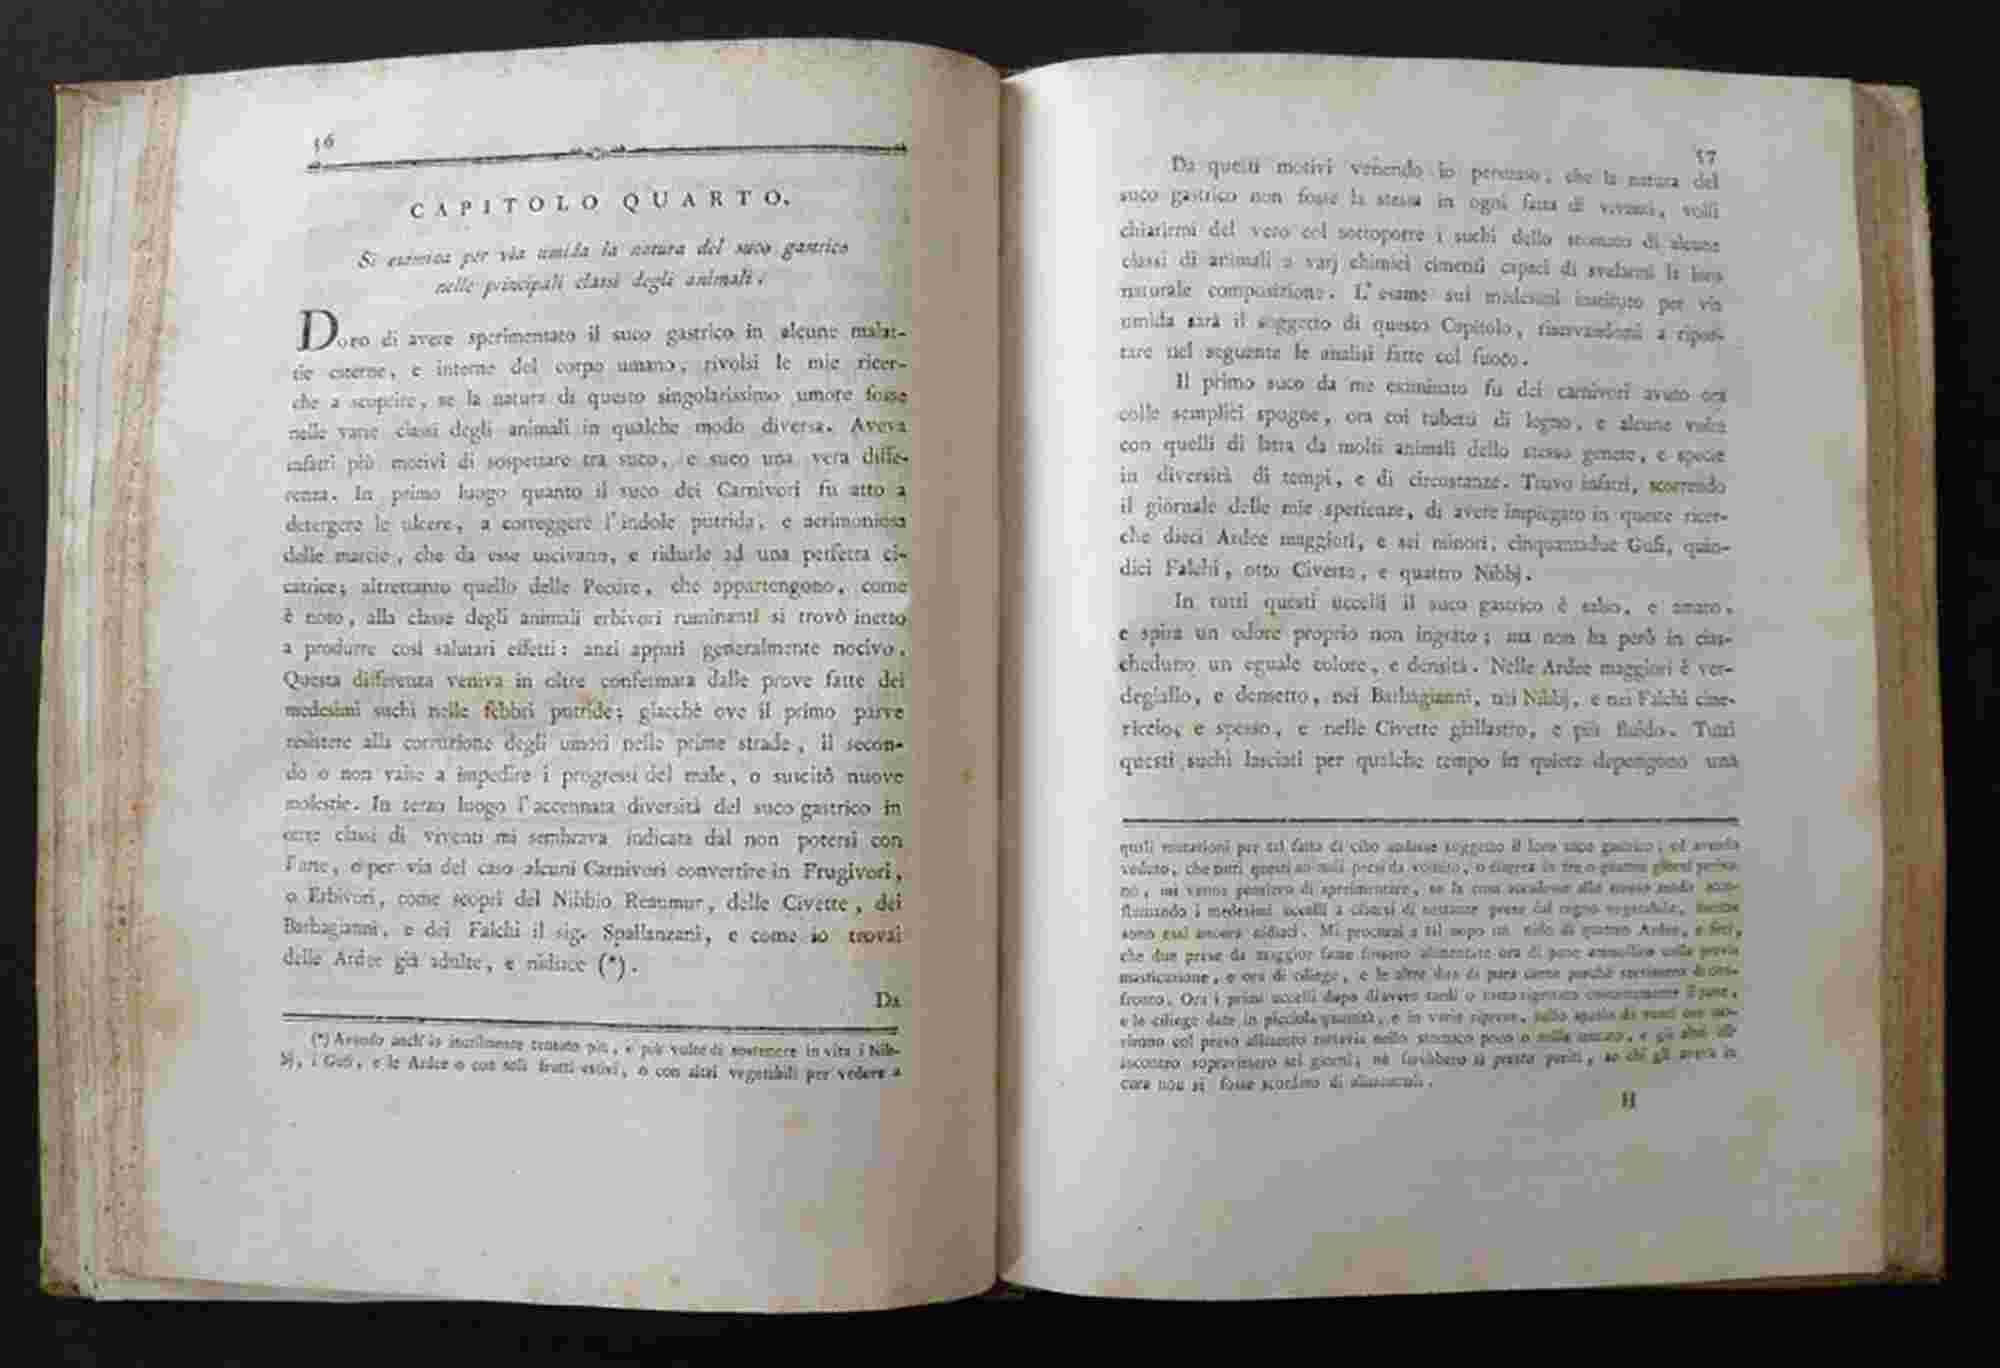 56
CAPITOLO QUARTO.
Si esamina per via umida la natura del suco gastrico
nelle principali classi degli animali.
Dopo di avere sperimentato il suco gastrico in alcune malat-
tie esterne, e interne del corpo umano, rivolsi le mie ricer-
che a scoprire, se la natura di questo singolarissimo umore fosse
nelle varie classi degli animali in qualche modo diversa. Aveva
infatti più motivi di sospettare tra suco, e suco una vera diffe-
renza. In primo luogo quanto il suco dei Carnivori fu atto a
detergere le ulcere, a correggere l'indole putrida, e acrimoniosa
delle marcie, che da esse uscivano, e ridurle ad una perfetta ci-
catrice; altrettanto quello delle Pecore, che appartengono, come
è noto, alla classe degli animali erbivori ruminanti si trovò inetto
a produrre così salutari effetti: anzi apparì generalmente nocivo.
Questa differenza veniva in oltre confermata dalle prove fatte dei
medesimi suchi nelle febbri putride; giacchè ove il primo parve
resistere alla corruzione degli umori nelle prime strade, il secon-
do o non valse a impedire i progressi del male, o suscitò nuove
molestie. In terzo luogo l'accennata diversità del suco gastrico in
certe classi di viventi mi sembrava indicata dal non potersi con
l'arte, o per via del caso alcuni Carnivori convertire in Frugivori,
o Erbivori, come scoprì del Nibbio Reaumur, delle Civette, dei
Barbagianni, e dei Falchi il sig. Spallanzani, e come io trovai
delle Ardee già adulte, e nidiace (*).
Da
(*) Avendo anch'io inutilmente tentato più, e più volte di sostenere in vita i Nib-
bj, i Gufi, e le Ardee o con soli frutti estivi, o con altri vegetabili per vedere a
57
Da questi motivi venendo io persuaso, che la natura del
suco gastrico non fosse la stessa in ogni fatta di viventi, volli
chiarirmi del vero col sottoporre i suchi dello stomaco di alcune
classi di animali a varj chimici cimenti capaci di svelarmi la loro
naturale composizione. L'esame sui medesimi instituto per via
umida sarà il soggetto di questo Capitolo, riservandomi a ripor-
tare nel seguente le analisi fatte col fuoco.
Il primo suco da me esaminato fu dei carnivori avuto ora
colle semplici spogne, ora coi tubetti di legno, e alcune volte
con quelli di latta da molti animali dello stesso genere, e specie
in diversità di tempi, e di circostanze. Trovo infatti, scorrendo
il giornale delle mie sperienze, di avere impiegato in queste ricer-
che dieci Ardee maggiori, e sei minori, cinquantadue Gufi, quin-
dici Falchi, otto Civette, e quattro Nibbj.
In tutti questi uccelli il suco gastrico è salso, e amaro,
e spira un odore proprio non ingrato; ma non ha però in cias-
cheduno un eguale colore, e densità. Nelle Ardee maggiori è ver-
degiallo, e densetto, nei Barbagianni, nei Nibbj, e nei Falchi cine-
riccio, e spesso, e nelle Civette giallastro, e più fluido. Tutti
questi suchi lasciati per qualche tempo in quiete depongono una
quali mutazioni per tal fatta di cibo andasse soggetto il loro suco gastrico; ed avendo
veduto, che tutti questi animali presi da vomito, o diarrea in tre o quattro giorni periva-
no, mi venne pensiero di sperimentare, se la cosa accadesse allo stesso modo accos-
tumando i medesimi uccelli a cibarsi di sostanze prese dal regno vegetabile, mentre
sono essi ancora nidiaci. Mi procurai a tal uopo un nido di quattro Ardee, e feci,
che due prese da maggior fame fossero alimentate ora di pane ammollito colla previa
masticazione, e ora di ciliege, e le altre due di pura carne perchè servissero di con-
fronto. Ora i primi uccelli dopo di avere tardi o tosto rigettato costantemente il pane,
e le ciliege date in picciola quantità, e in varie riprese, nello spazio di venti ore mo-
rirono col preso alimento tuttavia nello stomaco poco o nulla mutato, e gli altri all'
incontro sopravissero sei giorni; nè sarebbero sì presto periti, se chi gli aveva in
cura non si fosse scordato di alimentarli.
H